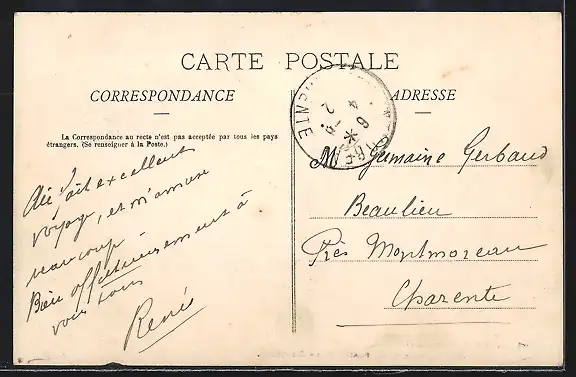 CARTE POSTALE
CORRESPONDANCE
ADRESSE
La Correspondance au recto n'est pas acceptée par tous les pays
étrangers. (Se renseigner à la Poste.)
Ai fait excellent
voyage, et m'amuse
beaucoup.
Bien affectueusement à
vous tous
René
Germaine Gerbaud
Beaulieu
Près Montmoreau
Charente